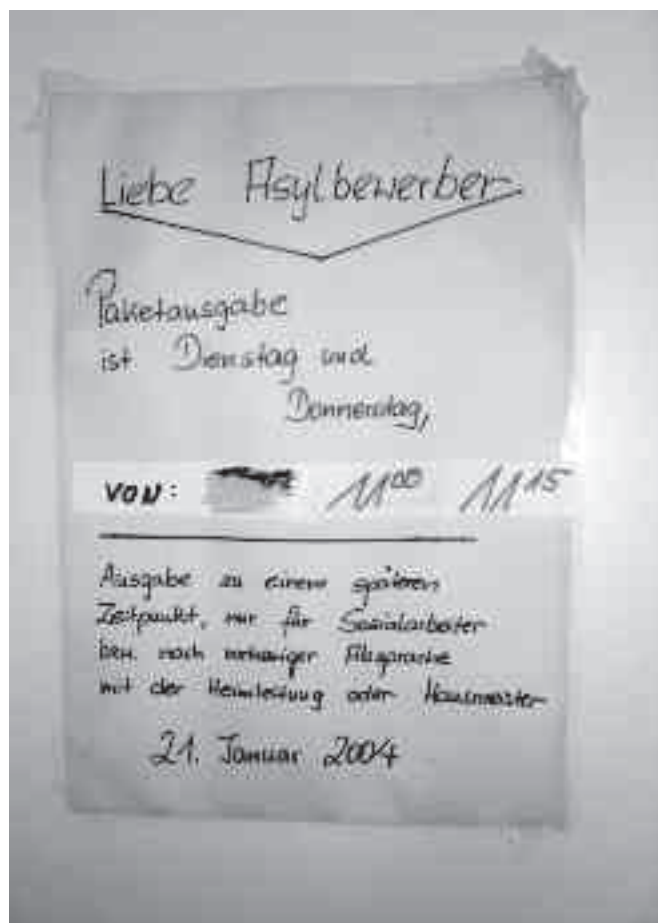 Liebe Asylbewerber
Paketausgabe
ist Dienstag und
Donnerstag,
VON: 11⁰⁰ 11¹⁵
Ausgabe zu einem späteren
Zeitpunkt, nur für Sozialarbeiter
bzw. nach vorheriger Absprache
mit der Heimleitung oder Hausmeister
21. Januar 2004